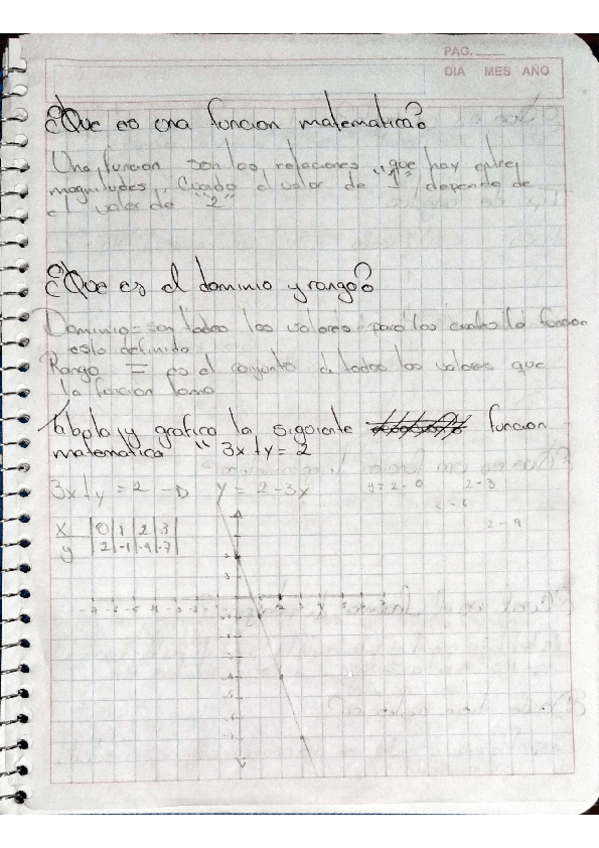 PAG.
DIA MES AÑO
¿Que es una funcion matematica?
Una funcion son las relaciones "que hay entre
magnitudes, Cuando el valor de "1" depende de
el valor de "2"
¿Que es el dominio y rango?
Dominio = son todos los valores para los cuales la funcion
esta definida
Rango = es el conjunto de todos los valores que
la funcion toma
Tabula y grafica la siguiente funcion
matematica " 3x+y=2
3x+y=2 → y=2-3x y=2-0 2-3
-6
2-9
x 0 1 2 3
y 2 -1 -4 -7